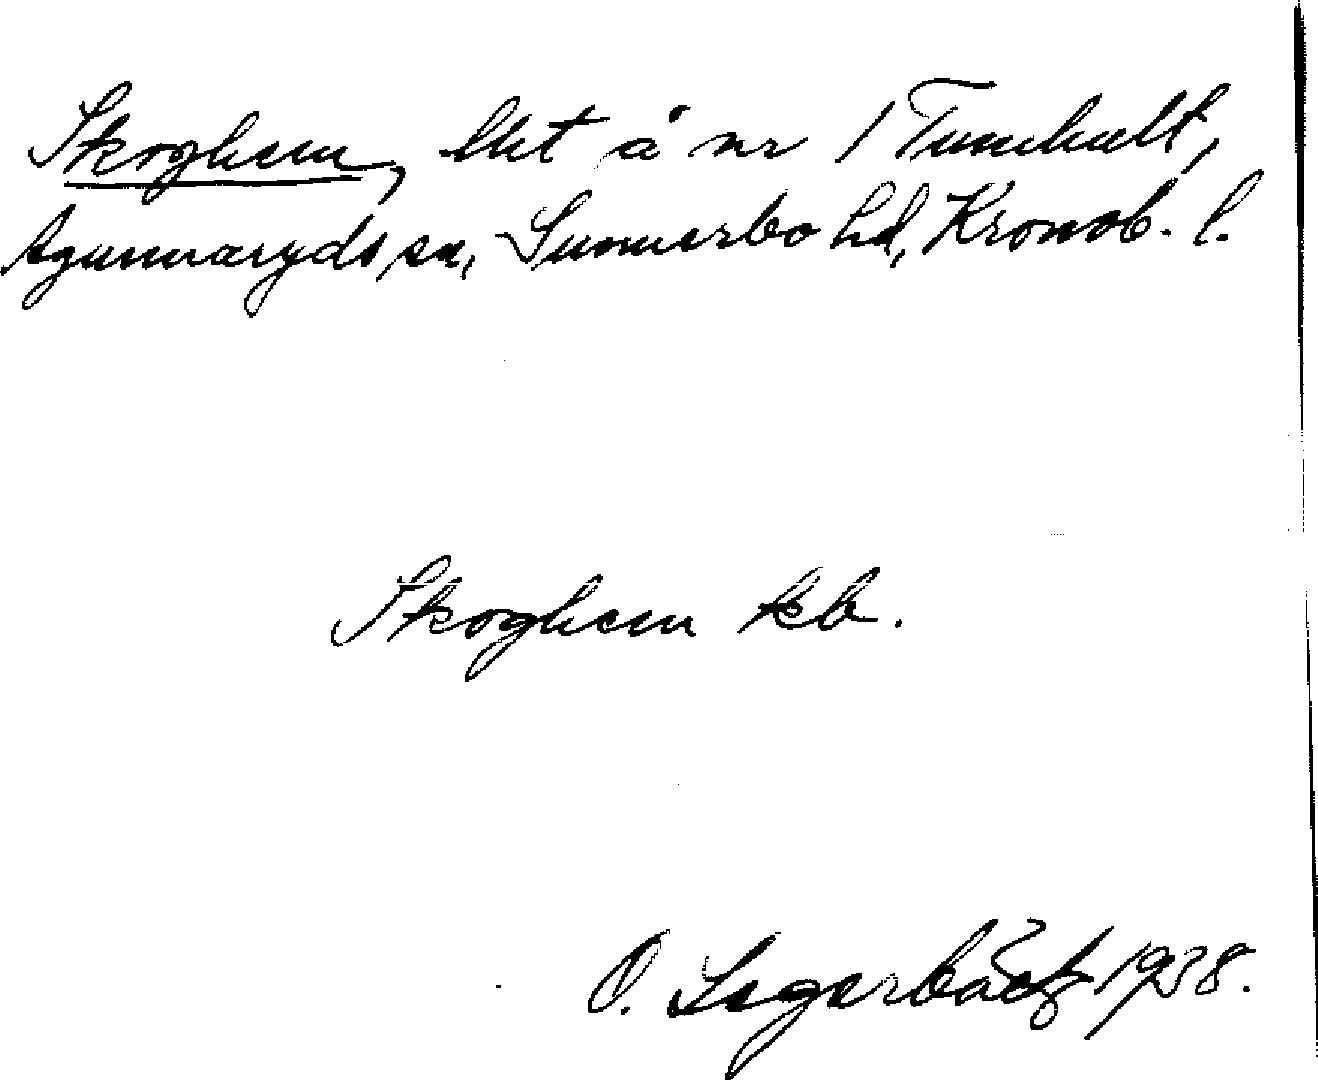 Skoghem, lht å nr 1 Tumhult,
Agunnaryds sn, Sunnerbo hd, Kronob. l.
Skoghem kb.
O. Lagerbäck 1938.